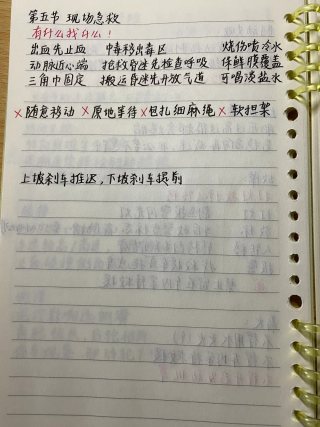 第五节 现场急救
有什么找什么!
出血先止血 中毒移出毒区 烧伤喷冷水
动脉近心端 抢救昏迷先检查呼吸 伴鲜膜覆盖
三角巾固定 搬运昏迷先开放气道 可喝淡盐水
×随意移动 ×原地等待 ×包扎细麻绳 ×软担架
上坡刹车推迟,下坡刹车提前